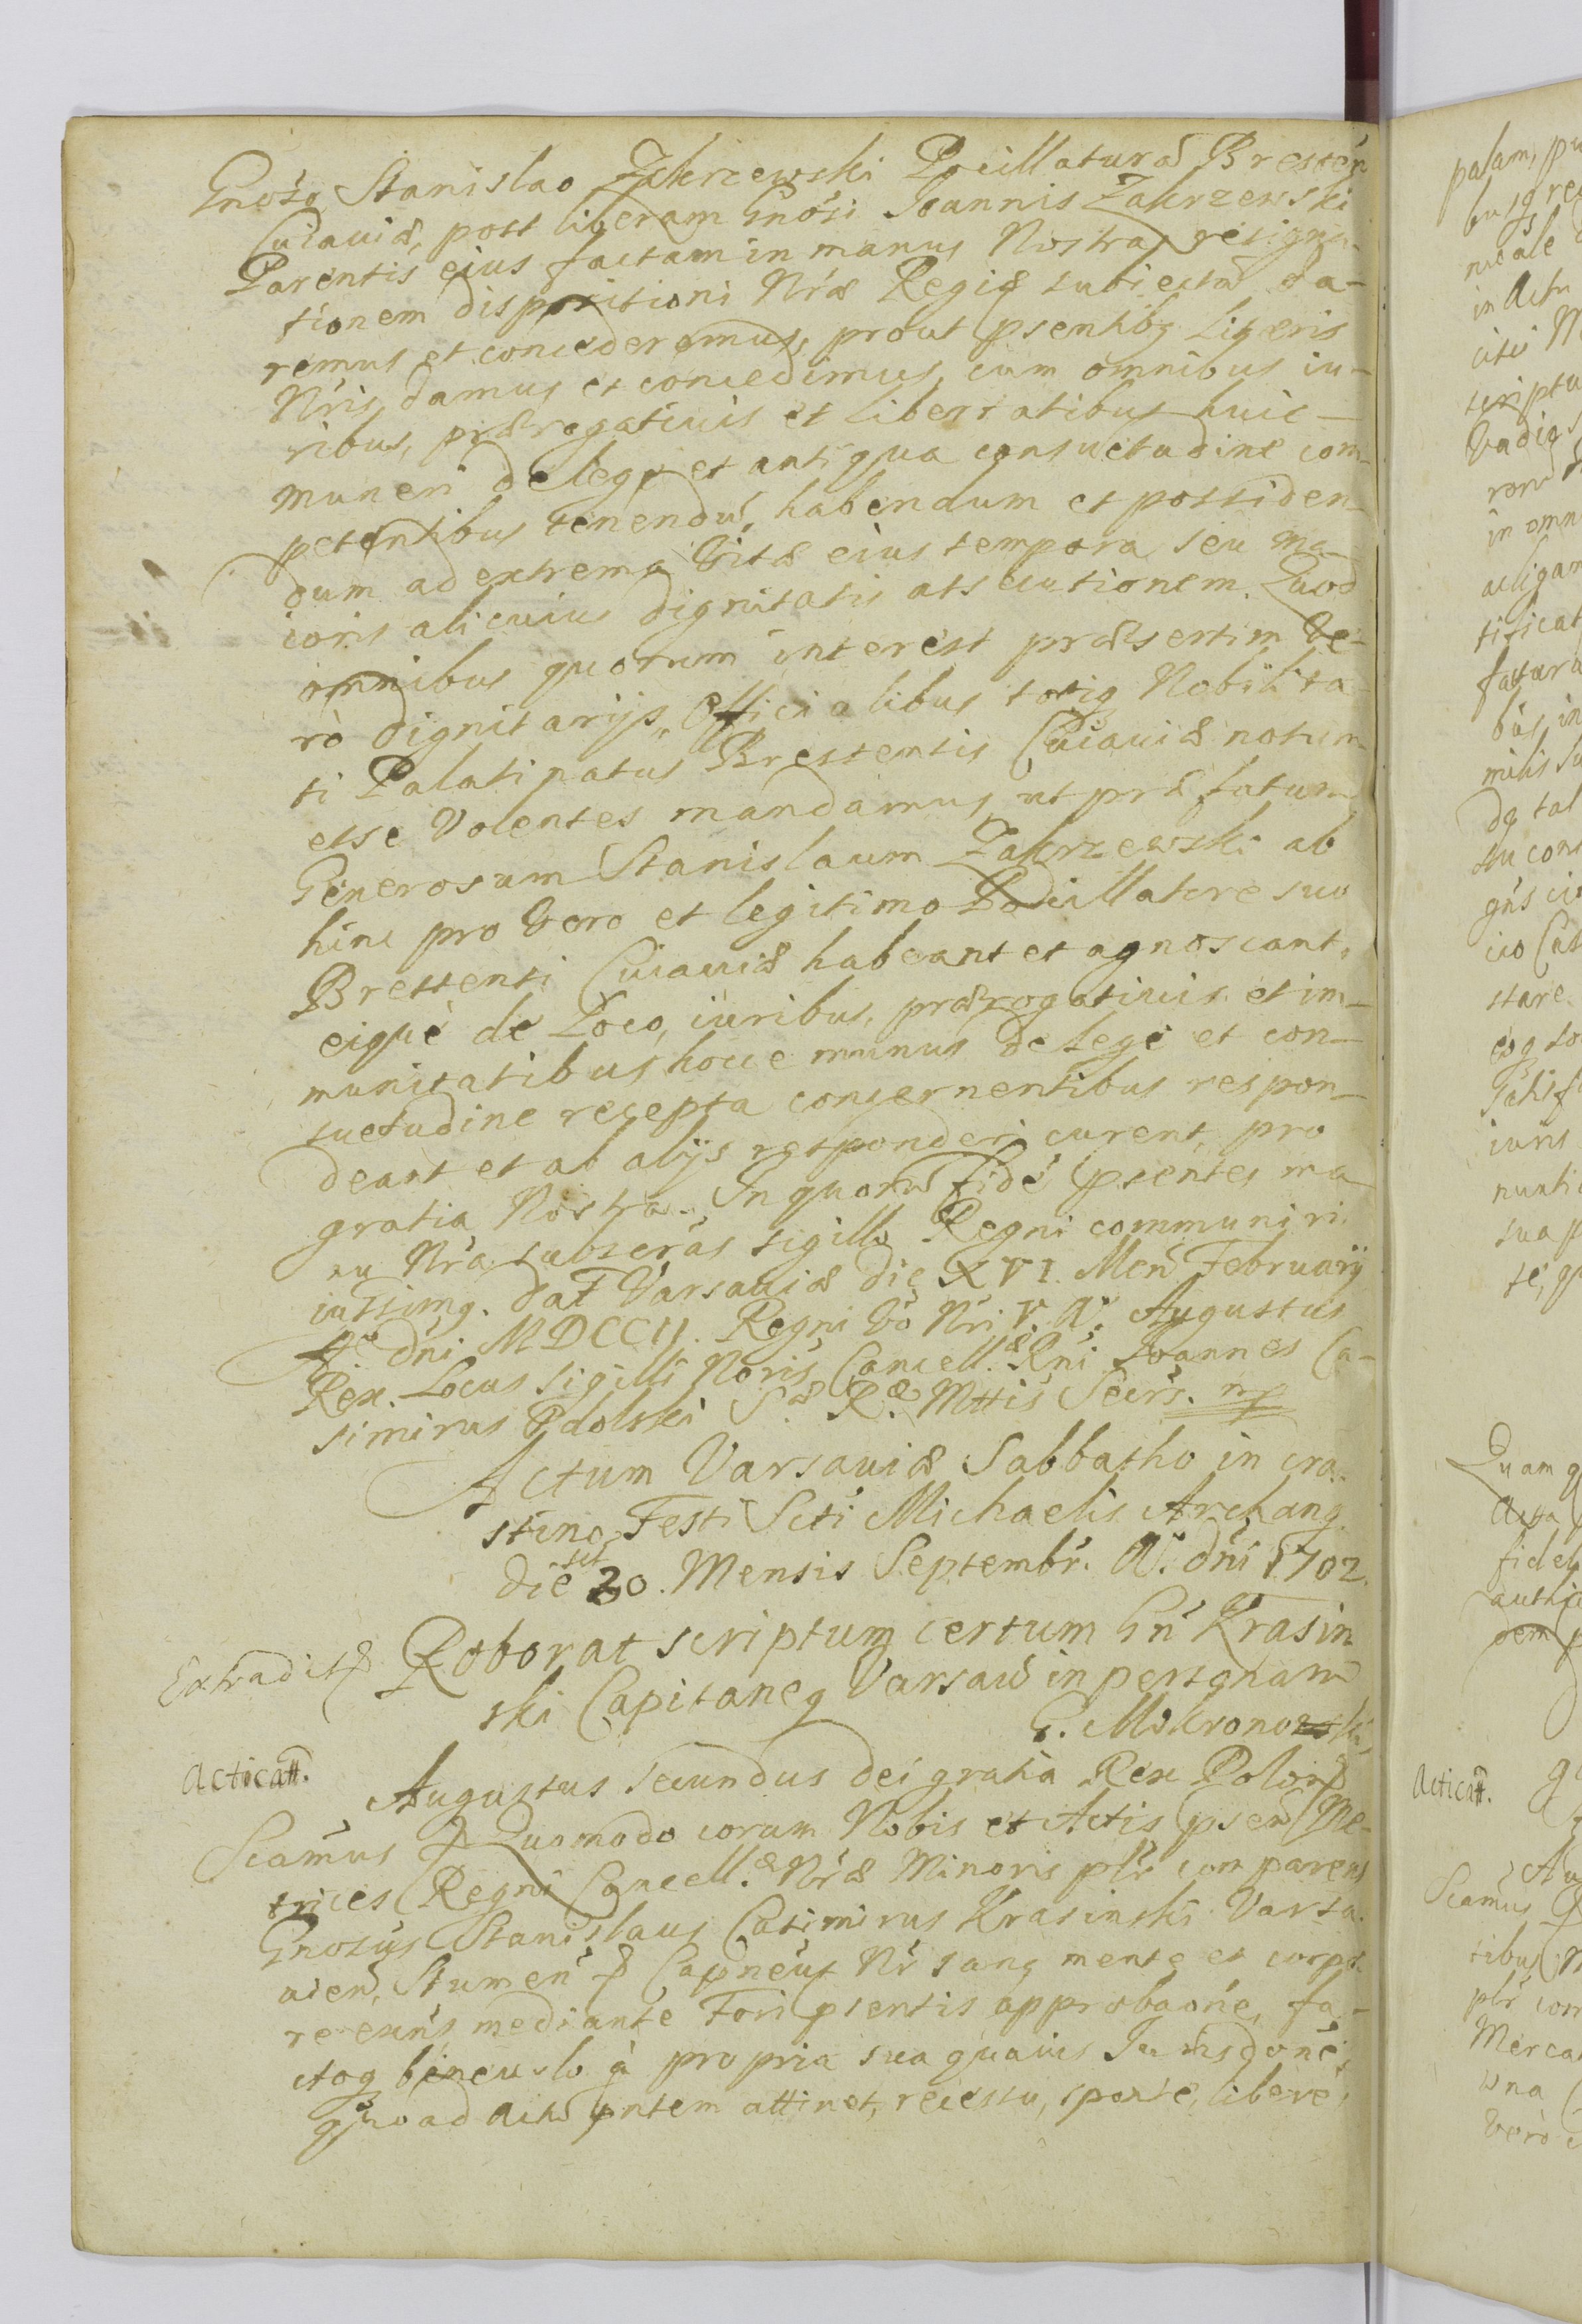 Gnoso Stanislao Zakrzewski Pocillaturã Bresteñ
Cuiauiæ, post liberam Gnosi Joannis Zakrzewski
Parentis eius factam in manus Nostras resigna-
tionem dispositioni Nræ Regiæ subiectã da-
remus et concederemus, prout psentibq Literis
Nris damus et concedimus, cum omnibus iu-
ribus, prærogatiuis et libertatibus huic
muneri de lege et antiqua consuetudine com-
petentibus tenendũ, habendum et possiden-
dum ad extrema Vitæ eius tempora seu ma-
ioris alicuius dignitatis assecutionem. Quod
omnibus quorum interest præsertim Ve-
rò Dignitarijs, Officialibus totiq Nobilita-
ti Palatinatus Brestensis Cuiauiæ notum
esse Volentes mandamus, ut præfatum
Generosum Stanislaum Zakrzewski ab
hinc pro Vero et legitimo Pocillatore suo
Brestensi Cuiauiæ habeant et agnoscant,
eiquè de Loco, iuribus, prærogatiuis et im-
munitatibus hocce munus de lege et con-
suetudine recepta concernentibus respon-
deant et ab alijs responderi curent, pro
gratia Nostra. In quorũ fidẽ psentes ma-
nu Nra subscras sigillo Regni communiri
iussimq. Dat Varsauiæ die XVI. Men Februarij
Aõ Dni MDCCII. Regni Vo Nri V. Aõ. Augustus
Rex. Locus Sigilli Noris Cancell.æ Rni Joannes Ca-
simirus Podolski S.æ R.æ Mttis Secrs. mp
Actum Varsauiæ Sabbatho in cra-
stino Festi Scti Michaelis Archang.
die sct 30. Mensis Septembr. A. dni 1702.
Extradit
Roborat scriptum certum Gñ Krasin
ski Capitaneq Varsaw in personam
G. Mokronoski,
Acticatt.
Augustus Secundus dei gratia Rex Polon
Scamus Quomodo coram Nobis et Actis psen Me-
trices Regni Cancell.æ Nræ Minoris plr comparens
Gnosus Stanislaus Casimirus Krasinski Varsa-
uien, Capneus Nr sanq mente et corpo-
re exñs mediante Fori psentis approbaone, fa-
ctoq à propria sua quauis Jurisdone,
quoad Actũ pntem attinet, recessu, sponte, liberè,
palam, pu
nuale
in Actu
scriptu
Vadiq
in omn
tificat
bus in
milis su
de tal
stare
iuris
nuntia
sua p
Quam q
Acta
fidel
dem
Acticatt.
Scamus
plr com
Mercat
una
Vero